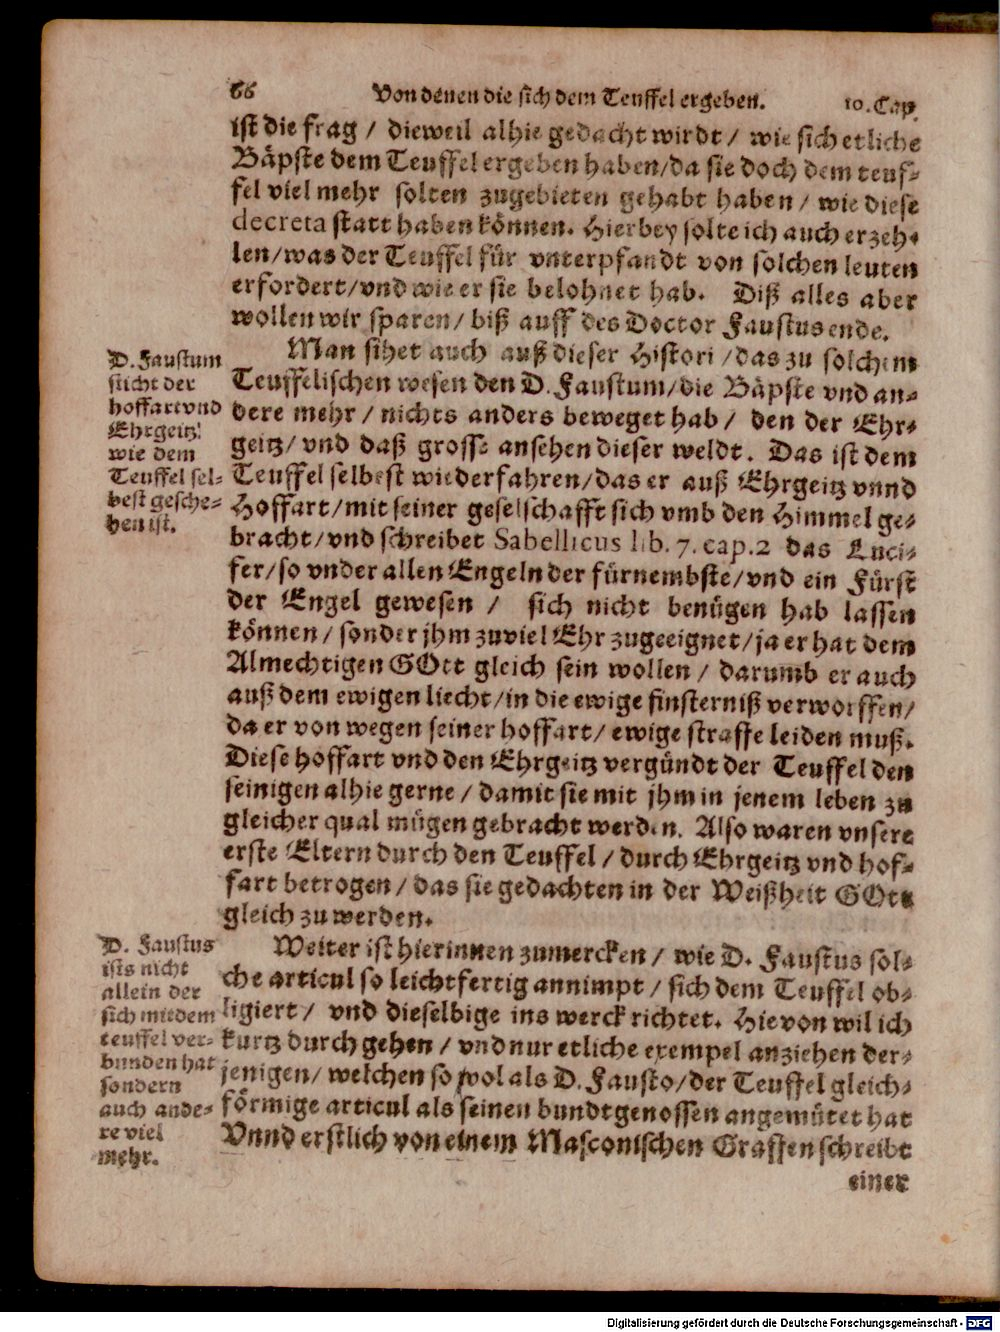 66 Von denen die sich dem Teuffel ergeben. 10. Cap.
ist die frag / dieweil alhie gedacht wirdt / wie sich etliche
Bäpste dem Teuffel ergeben haben/da sie doch dem teuf-
fel viel mehr solten zugebieten gehabt haben / wie diese
decreta statt haben können. Hierbey solte ich auch erzeh-
len/was der Teuffel für vnterpfandt von solchen leuten
erfordert/vnd wie er sie belohnet hab. Diß alles aber
wollen wir sparen/ biß auff des Doctor Faustus ende.
Man sihet auch auß dieser Histori /das zu solchem
Teuffelischen wesen den D. Faustum/die Bäpste vnd an-
dere mehr / nichts anders beweget hab / den der Ehr-
geitz/ vnd daß grosse ansehen dieser weldt. Das ist dem
Teuffel selbest wiederfahren/das er auß Ehrgeitz vnnd
Hoffart/mit seiner gesellschafft sich vmb den Himmel ge-
bracht/vnd schreibet Sabellicus lib. 7. cap.2 das Luci-
fer/so vnder allen Engeln der fürnembste/vnd ein Fürst
der Engel gewesen / sich nicht benügen hab lassen
können/ sonder jhm zuviel Ehr zugeeignet/ja er hat dem
Almechtigen GOtt gleich sein wollen / darumb er auch
auß dem ewigen liecht/in die ewige finsterniß verworffen/
da er von wegen seiner hoffart/ ewige straffe leiden muß.
Diese hoffart vnd den Ehrgeitz vergündt der Teuffel den
seinigen alhie gerne / damit sie mit jhm in jenem leben zu
gleicher qual mügen gebracht werden. Also waren vnsere
erste Eltern durch den Teuffel / durch Ehrgeitz vnd hof-
fart betrogen / das sie gedachten in der Weißheit GOtt
gleich zu werden.
Weiter ist hierinnen zumercken / wie D. Faustus sol-
che articul so leichtfertig annimpt / sich dem Teuffel ob-
ligiert / vnd dieselbige ins werck richtet. Hievon wil ich
kurtz durch gehen / vnd nur etliche exempel anziehen der-
jenigen/ welchen so wol als D. Fausto/der Teuffel gleich-
förmige articul als seinen bundtgenossen angemütet hat
Vnnd erstlich von einem Masconischen Graffen schreibt
einer
D. Faustum
sticht der
hoffart vnd
Ehrgeitz!
wie dem
Teuffel sel-
best gesche-
hen ist.
D. Faustus
ists nicht
allein der
sich mit dem
teuffel ver-
bunden hat
sondern
auch ande-
re viel
mehr.
Digitalisierung gefördert durch die Deutsche Forschungsgemeinschaft - DFG